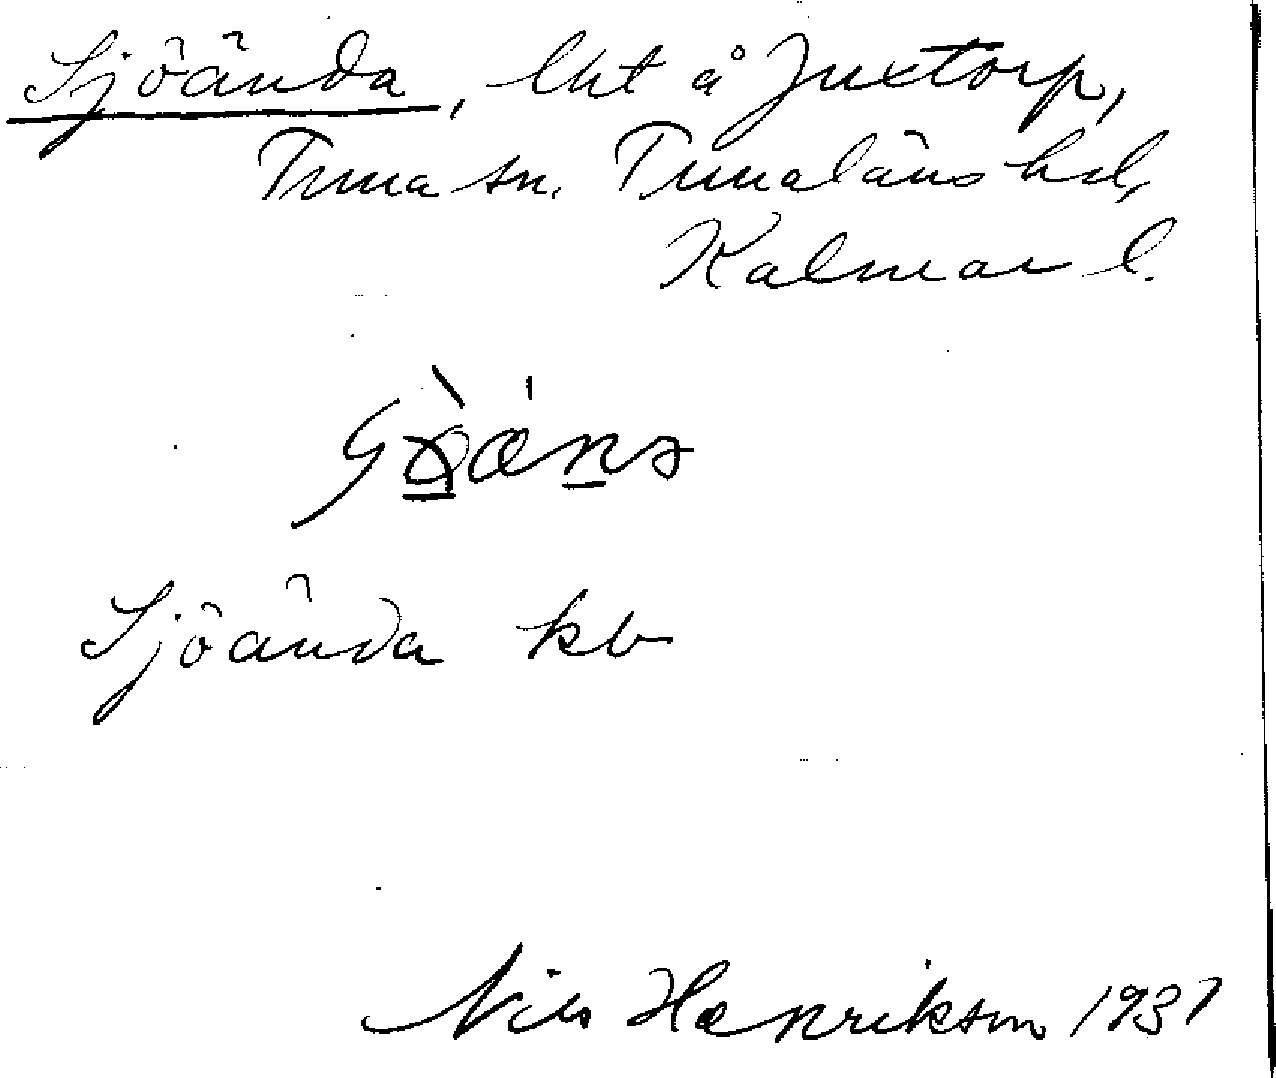 Sjöända, lht å Juxtorp,
Tuna sn. Tunaläns hd,
Kalmar l.
Sjöända kb
Nils Henrikson 1937